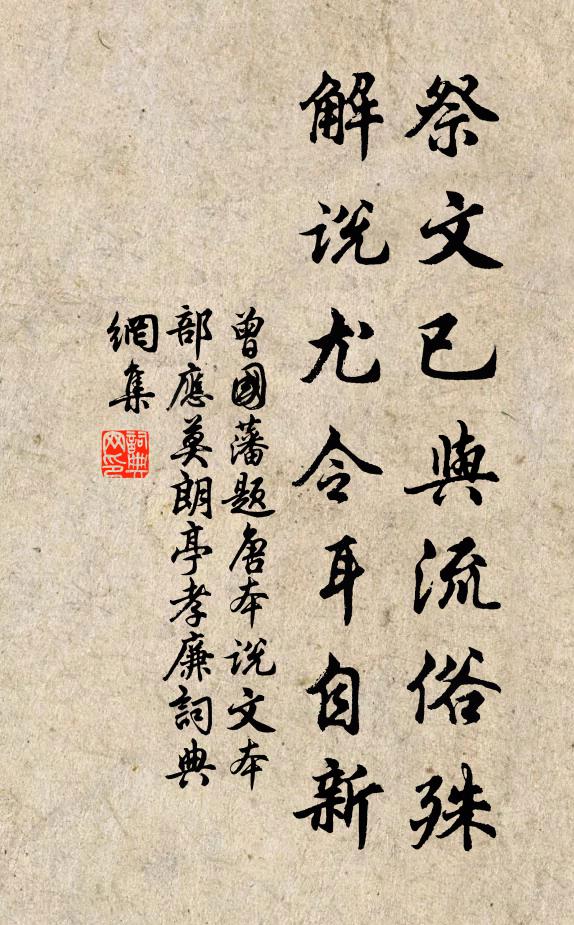 祭文已與流俗殊
解説尤令耳目新
曾國藩題唐本説文本
部應莫朗亭孝廉詞典
網集
詞典
网印